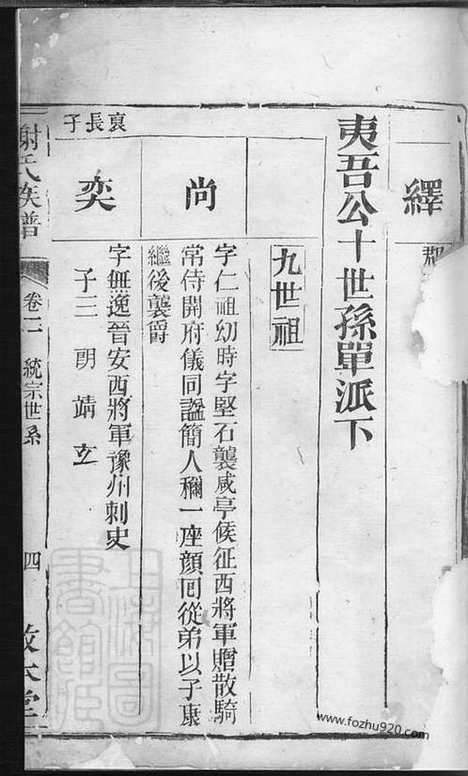 繹
郡
夷吾公十世孫單派下
九世祖
尚
字仁祖幼時字堅石襲咸亭候征西將軍贈散騎
常侍開府儀同謚簡人稱一座顔回從弟以子康
繼後襲爵
裒長子
奕
字無逸晉安西將軍豫州刺史
子三 朗 靖 玄
謝氏族譜
卷二 統宗世系
四
敦本堂
www.fozhu920.com